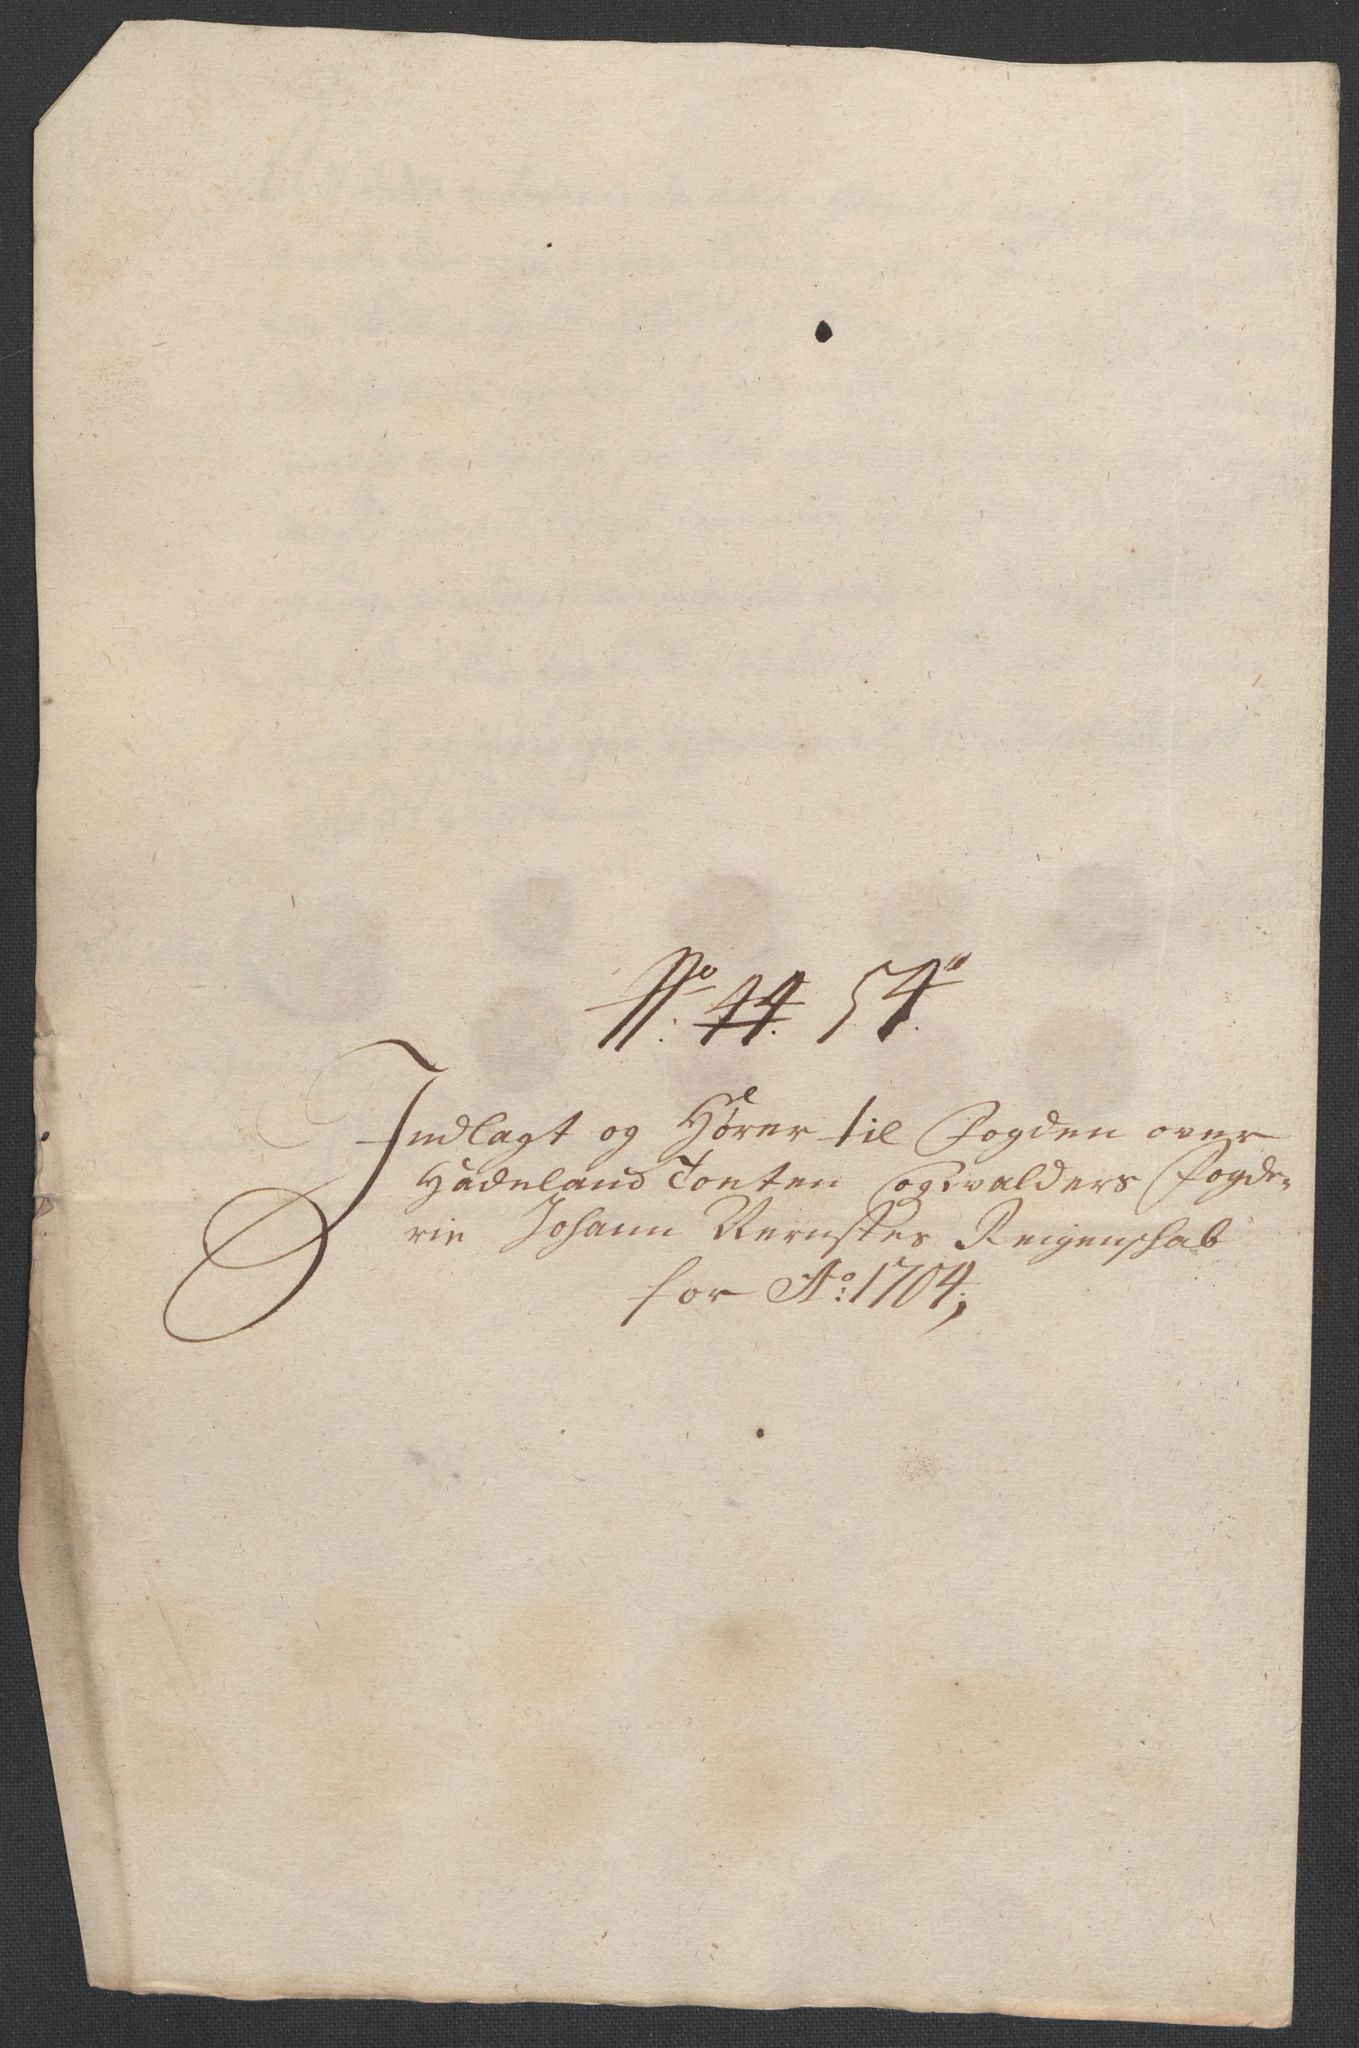 No. 44. 54"
Indlagt og Hører til Fogden over
Hadeland Toeten og Valders Fogde-
rie Johann Vernstes Reigenschab
for Ao: 1704,